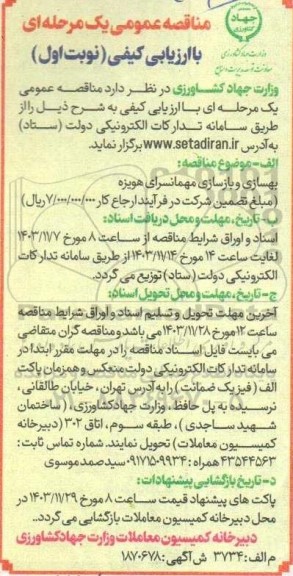 جهاد کشاورزی
وزارت جهاد کشاورزی
مناقصه عمومی یک مرحله ای
با ارزیابی کیفی (نوبت اول)
وزارت جهاد کشـــاورزی در نظـــر دارد مناقصـــه عمومی
یک مرحلـه ای بـا ارزیابی کیفی به شـرح ذیـل را از
طریق سامانه تدارکات الکترونیکی دولت (ستاد)
به آدرس www.setadiran.ir برگزار نماید.
الف-موضوع مناقصه:
بهسازی و بازسازی مهمانسرای هویزه
(مبلغ تضمین شرکت در فرآیند ارجاع کار ۷/۰۰۰/۰۰۰/۰۰۰ ریال)
ب-تاریخ، مهلت و محل دریافت اسناد:
اسناد و اوراق شرایط مناقصه از ســاعت ۸ مورخ ۱۴۰۳/۱۱/۷
لغایت ساعت ۱۴ مورخ ۱۴۰۳/۱۱/۱۴ از طریق سامانه تدارکات
الکترونیکی دولت (ستاد) توزیع می گردد.
ج-تاریخ، مهلت و محل تحویل اسناد:
آخرین مهلت تحویل و تسلیم اسناد و اوراق شرایط مناقصه
ساعت ۱۲ مورخ ۱۴۰۳/۱۱/۲۸ می باشد و مناقصه گران متقاضی
می بایست فایل اســناد مناقصه را در مهلت مقرر ابتدا در
سامانه تدارکات الکترونیکی دولت منعکس و همزمان پاکت
الف (فیزیک ضمانت) را به آدرس تهران، خیابان طالقانی،
نرسـیده به پل حافظ، وزارت جهادکشاورزی، (ساختمان
شهید ساجدی)، طبقه سوم، اتاق ۳۰۲ (دبیرخانه
کمیسـیون معاملات) تحویل نمایند. شماره تماس ثابت:
۴۳۵۴۴۵۶۳ همراه: ۰۹۱۷۱۵۰۹۹۳۴ سیدصمد موسوی
د-تاریخ بازگشایی پیشنهادات:
پاکت های پیشنهاد قیمت سـاعت ۸ مورخ ۱۴۰۳/۱۱/۲۹ در
محل دبیرخانه کمیسیون معاملات بازگشایی می گردد..
دبیرخانه کمیسیون معاملات وزارت جهادکشاورزی
م الف: ۳۷۳۴ ش آگهی: ۱۸۷۰۶۷۸